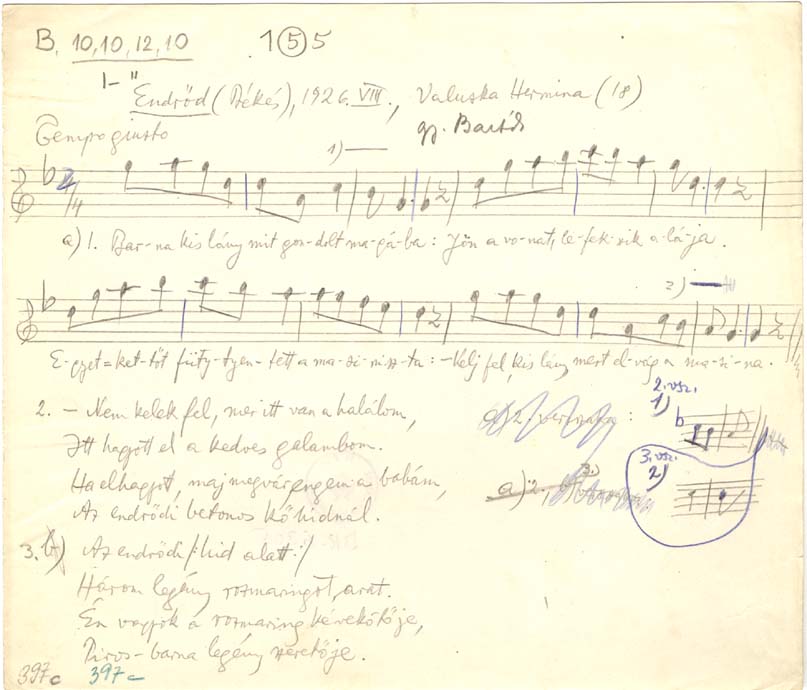 B, 10,10,12,10 1 5 5
1-"
Endrőd (Békés), 1926. VIII., Valuska Hermina (18)
Tempo giusto gy. Bartók
1)
2/4
a) 1. Bar-na kis lány mit gon-dolt ma-gá-ba: Jön a vo-nat, le-fek-szik a-lá-ja.
2)
E-gyet=ket-tőt füty-tyen-tett a ma-si-nisz-ta: -Kelj fel, kis lány, mert el-vág a ma-si-na.
2. - Nem kelek fel, mer itt van a halálom,
Itt hagyott el a kedves galambom.
Ha elhagyott, maj megvár engem a babám,
Az endrődi betonos kőhidnál.
2. vsz.
1)
3. vsz.
2)
a) 2.
3. b) Az endrődi /:hid alatt:/
Három legény rozmaringot arat.
Én vagyok a rozmaring kévekötője,
Piros-barna legény szeretője.
397c 397c